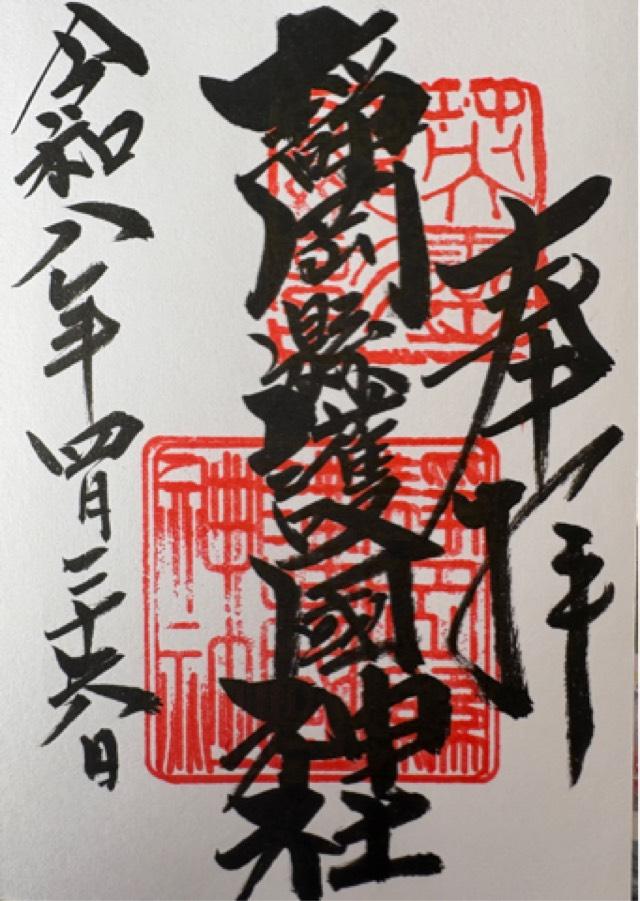 奉拝
静岡縣護國神社
令和八年四月二十六日